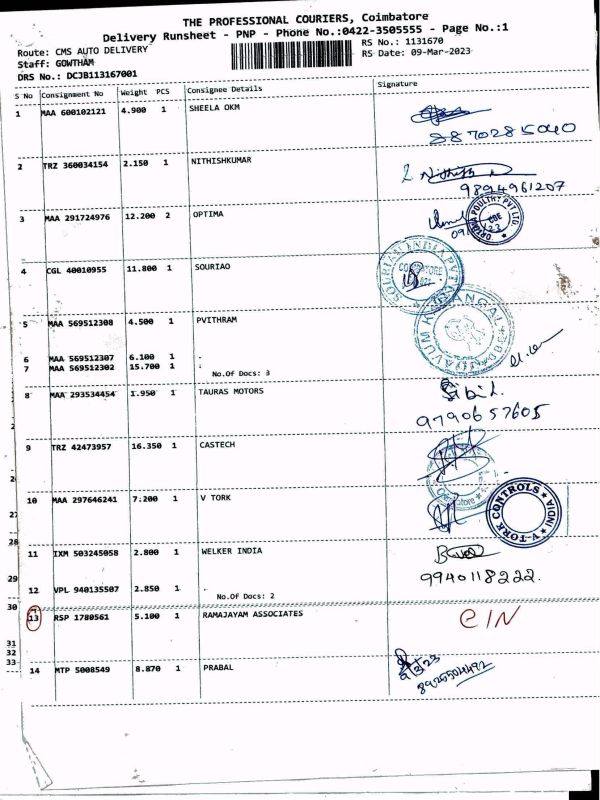 THE PROFESSIONAL COURIERS, Coimbatore
Delivery Runsheet - PNP - Phone No.:0422-3505555 - Page No.:1
Route: CMS AUTO DELIVERY RS No.: 1131670
Staff: GOWTHAM RS Date: 09-Mar-2023
DRS No.: DCJB113167001
S No Consignment No Weight PCS Consignee Details Signature
1 MAA 600102121 4.900 1 SHEELA OKM
88702815040
2 TRZ 360034154 2.150 1 NITHISHKUMAR
Nithish
9894961207
3 MAA 291724976 12.200 2 OPTIMA
OPTIMA POULTRY PVT LTD
CBE
4 CGL 40010955 11.800 1 SOURIAO
COIMBATORE
5 MAA 569512308 4.500 1 PVITHRAM
6 MAA 569512307 6.100 1 .
7 MAA 569512302 15.700 1 .
No.Of Docs: 3
8 MAA 293534454 1.950 1 TAURAS MOTORS
9790657605
9 TRZ 42473957 16.350 1 CASTECH
10 MAA 297646241 7.200 1 V TORK
V-TORK CONTROLS INDIA
11 IXM 503245058 2.800 1 WELKER INDIA
9940118222.
12 VPL 940135507 2.850 1 .
No.Of Docs: 2
13 RSP 1780561 5.100 1 RAMAJAYAM ASSOCIATES
CIN
14 MTP 5008549 8.870 1 PRABAL
8925504492
27
28
29
30
31
32
33